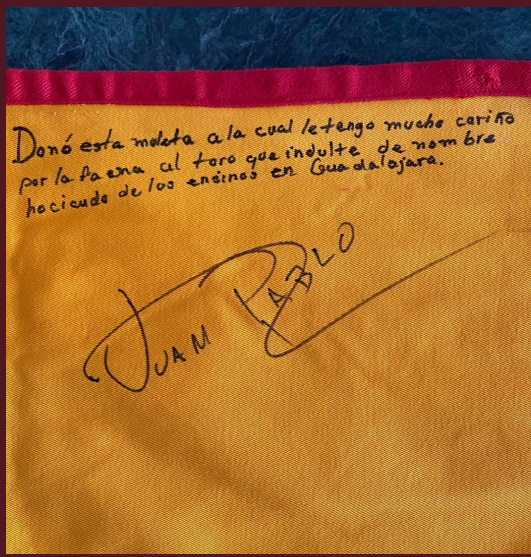 Donó esta muleta a la cual le tengo mucho cariño
por la faena al toro que indulte de nombre
haciendo de los encinos en Guadalajara.
JUAN PABLO